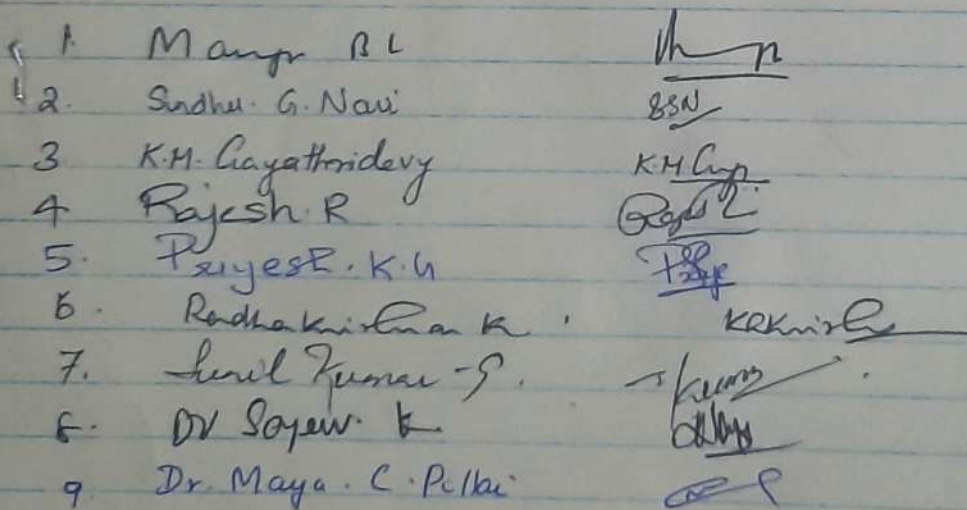 1. Manoj B L
2. Sindhu. G. Nair SSN
3 K.M. Gayathridevy K.M Gay
4 Rajesh. R
5. Priyesh. K. G
6. Radhakrishnan K. KRKrish
7. Sunil Kumar - S. Kumar
8. Dr K
9 Dr. Maya. C. Pillai